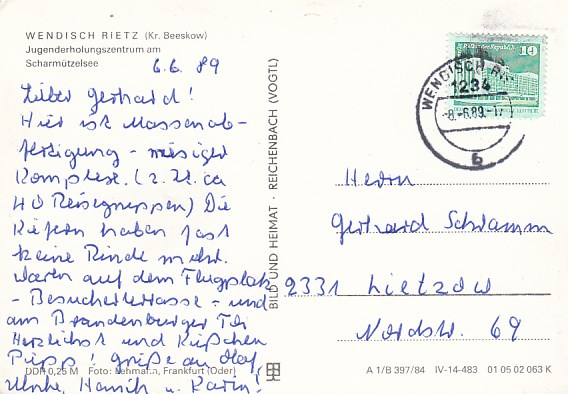 WENDISCH RIETZ (Kr. Beeskow)
Jugenderholungszentrum am
Scharmützelsee
6.6. 89
Lieber Gerhard!
Hier ist Massenab-
fertigung - riesiger
Komplex. (z. Zt. ca
40 Reisegruppen) Die
Kiefern haben fast
keine Rinde mehr.
Waren auf dem Flugplatz
- Besucherterrasse - und
am Brandenburger Tor
Herzlichst und Küßchen
Pupp! Grüße an Olaf,
Ulrike, Henrik u. Karin!
DDR 0,25 M Foto: Lehmann, Frankfurt (Oder)
BILD UND HEIMAT · REICHENBACH (VOGTL)
10
WENDISCH RI
1234
-8.-6.89.-17
b
Herrn
Gerhard Schramm
2331 Lietzow
Nordstr. 69
A 1/B 397/84 IV-14-483 01 05 02 063 K